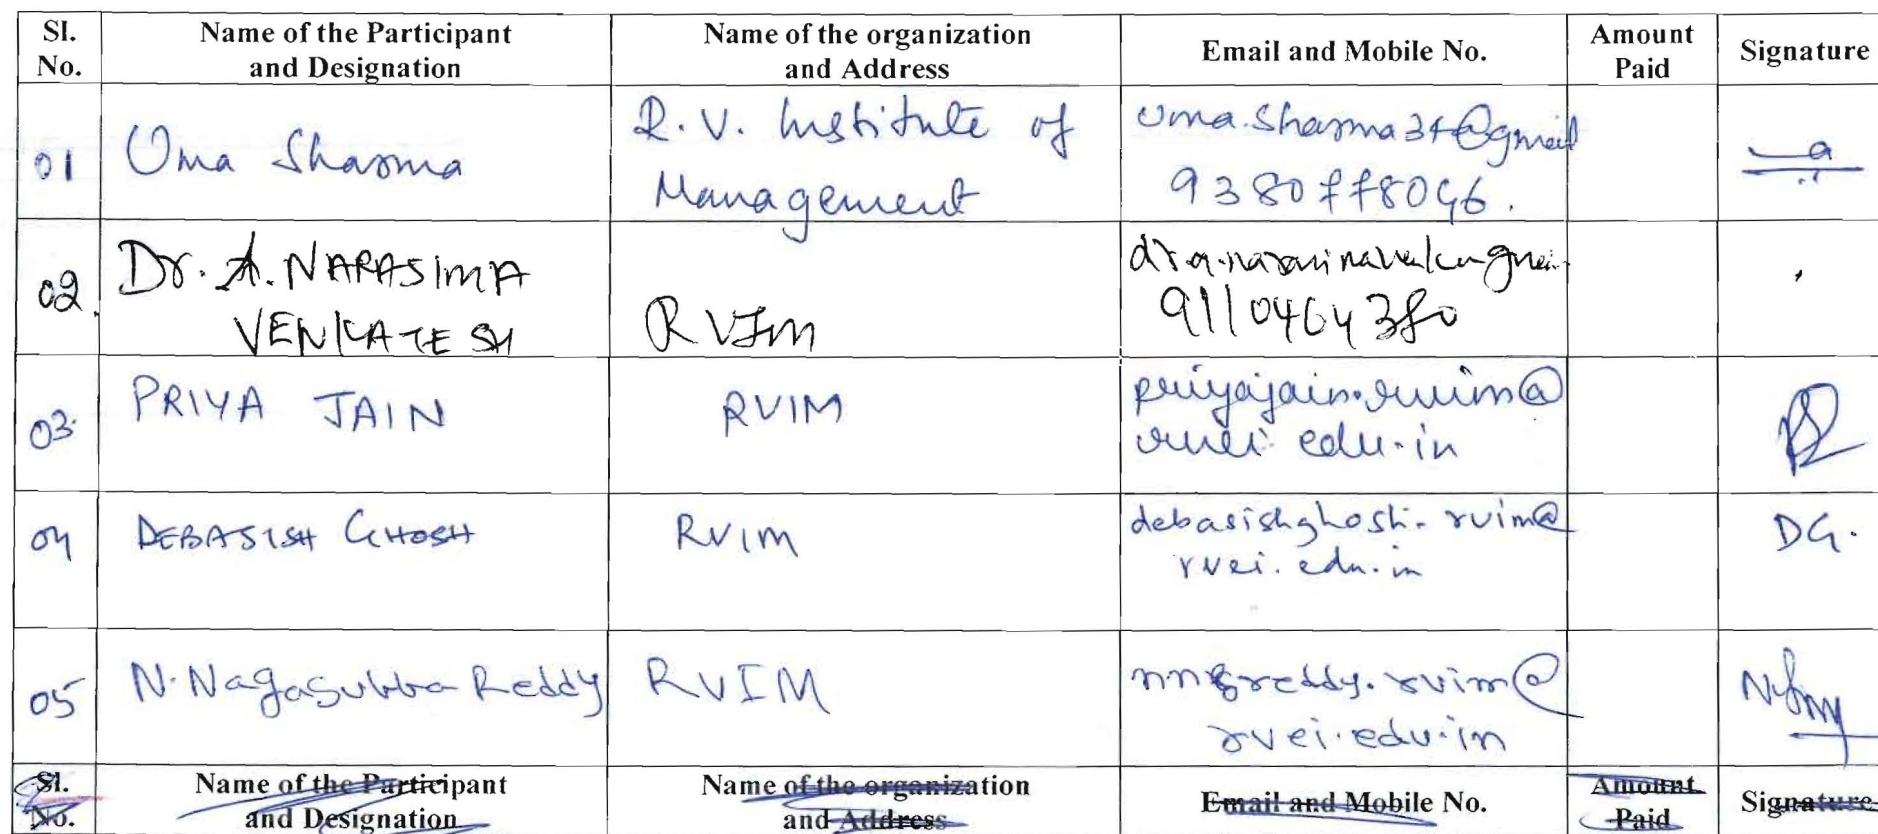 Sl. No. Name of the Participant and Designation Name of the organization and Address Email and Mobile No. Amount Paid Signature
01 Uma Sharma R.V. Institute of Management uma.sharma37@gmail 9380778046.
02. Dr. A. NARASIMA VENKATESH RVIM 9110464380
03. PRIYA JAIN RVIM priyajain.rvim@ rvei.edu.in
04 DEBASISH GHOSH RVIM debasishghosh.rvim@ rvei.edu.in DG.
05 N. Nagasubba Reddy RVIM nnsreddy.rvim@ rvei.edu.in
Sl. No. Name of the Participant and Designation Name of the organization and Address Email and Mobile No. Amount Paid Signature